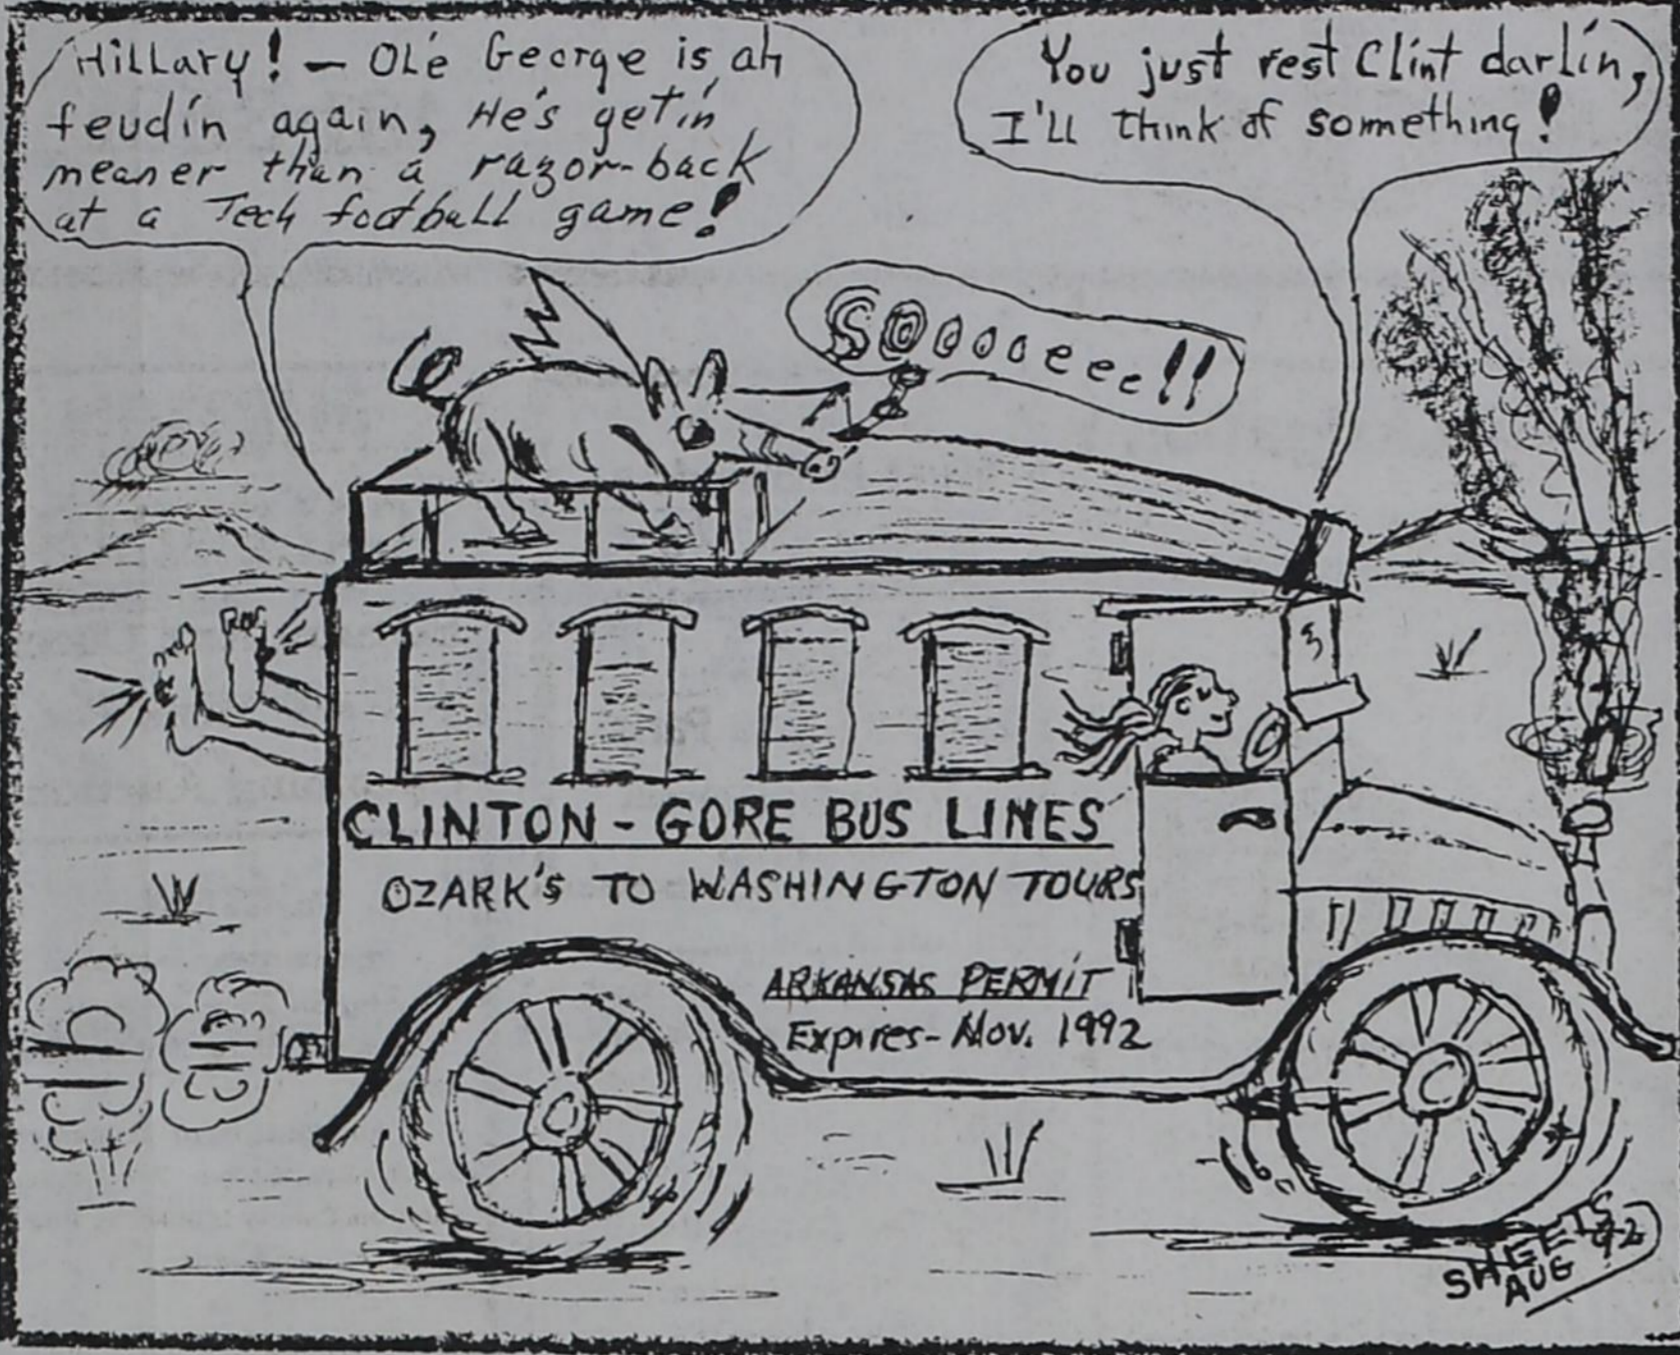 Hillary! - Olé George is ah
feudin again, He's getin
meaner than a razor-back
at a Tech football game!
You just rest Clint darlin,
I'll think of something!
SOoooeee!!
CLINTON - GORE BUS LINES
OZARK'S TO WASHINGTON TOURS
ARKANSAS PERMIT
Expires - Nov. 1992
SHEETS
AUG 92